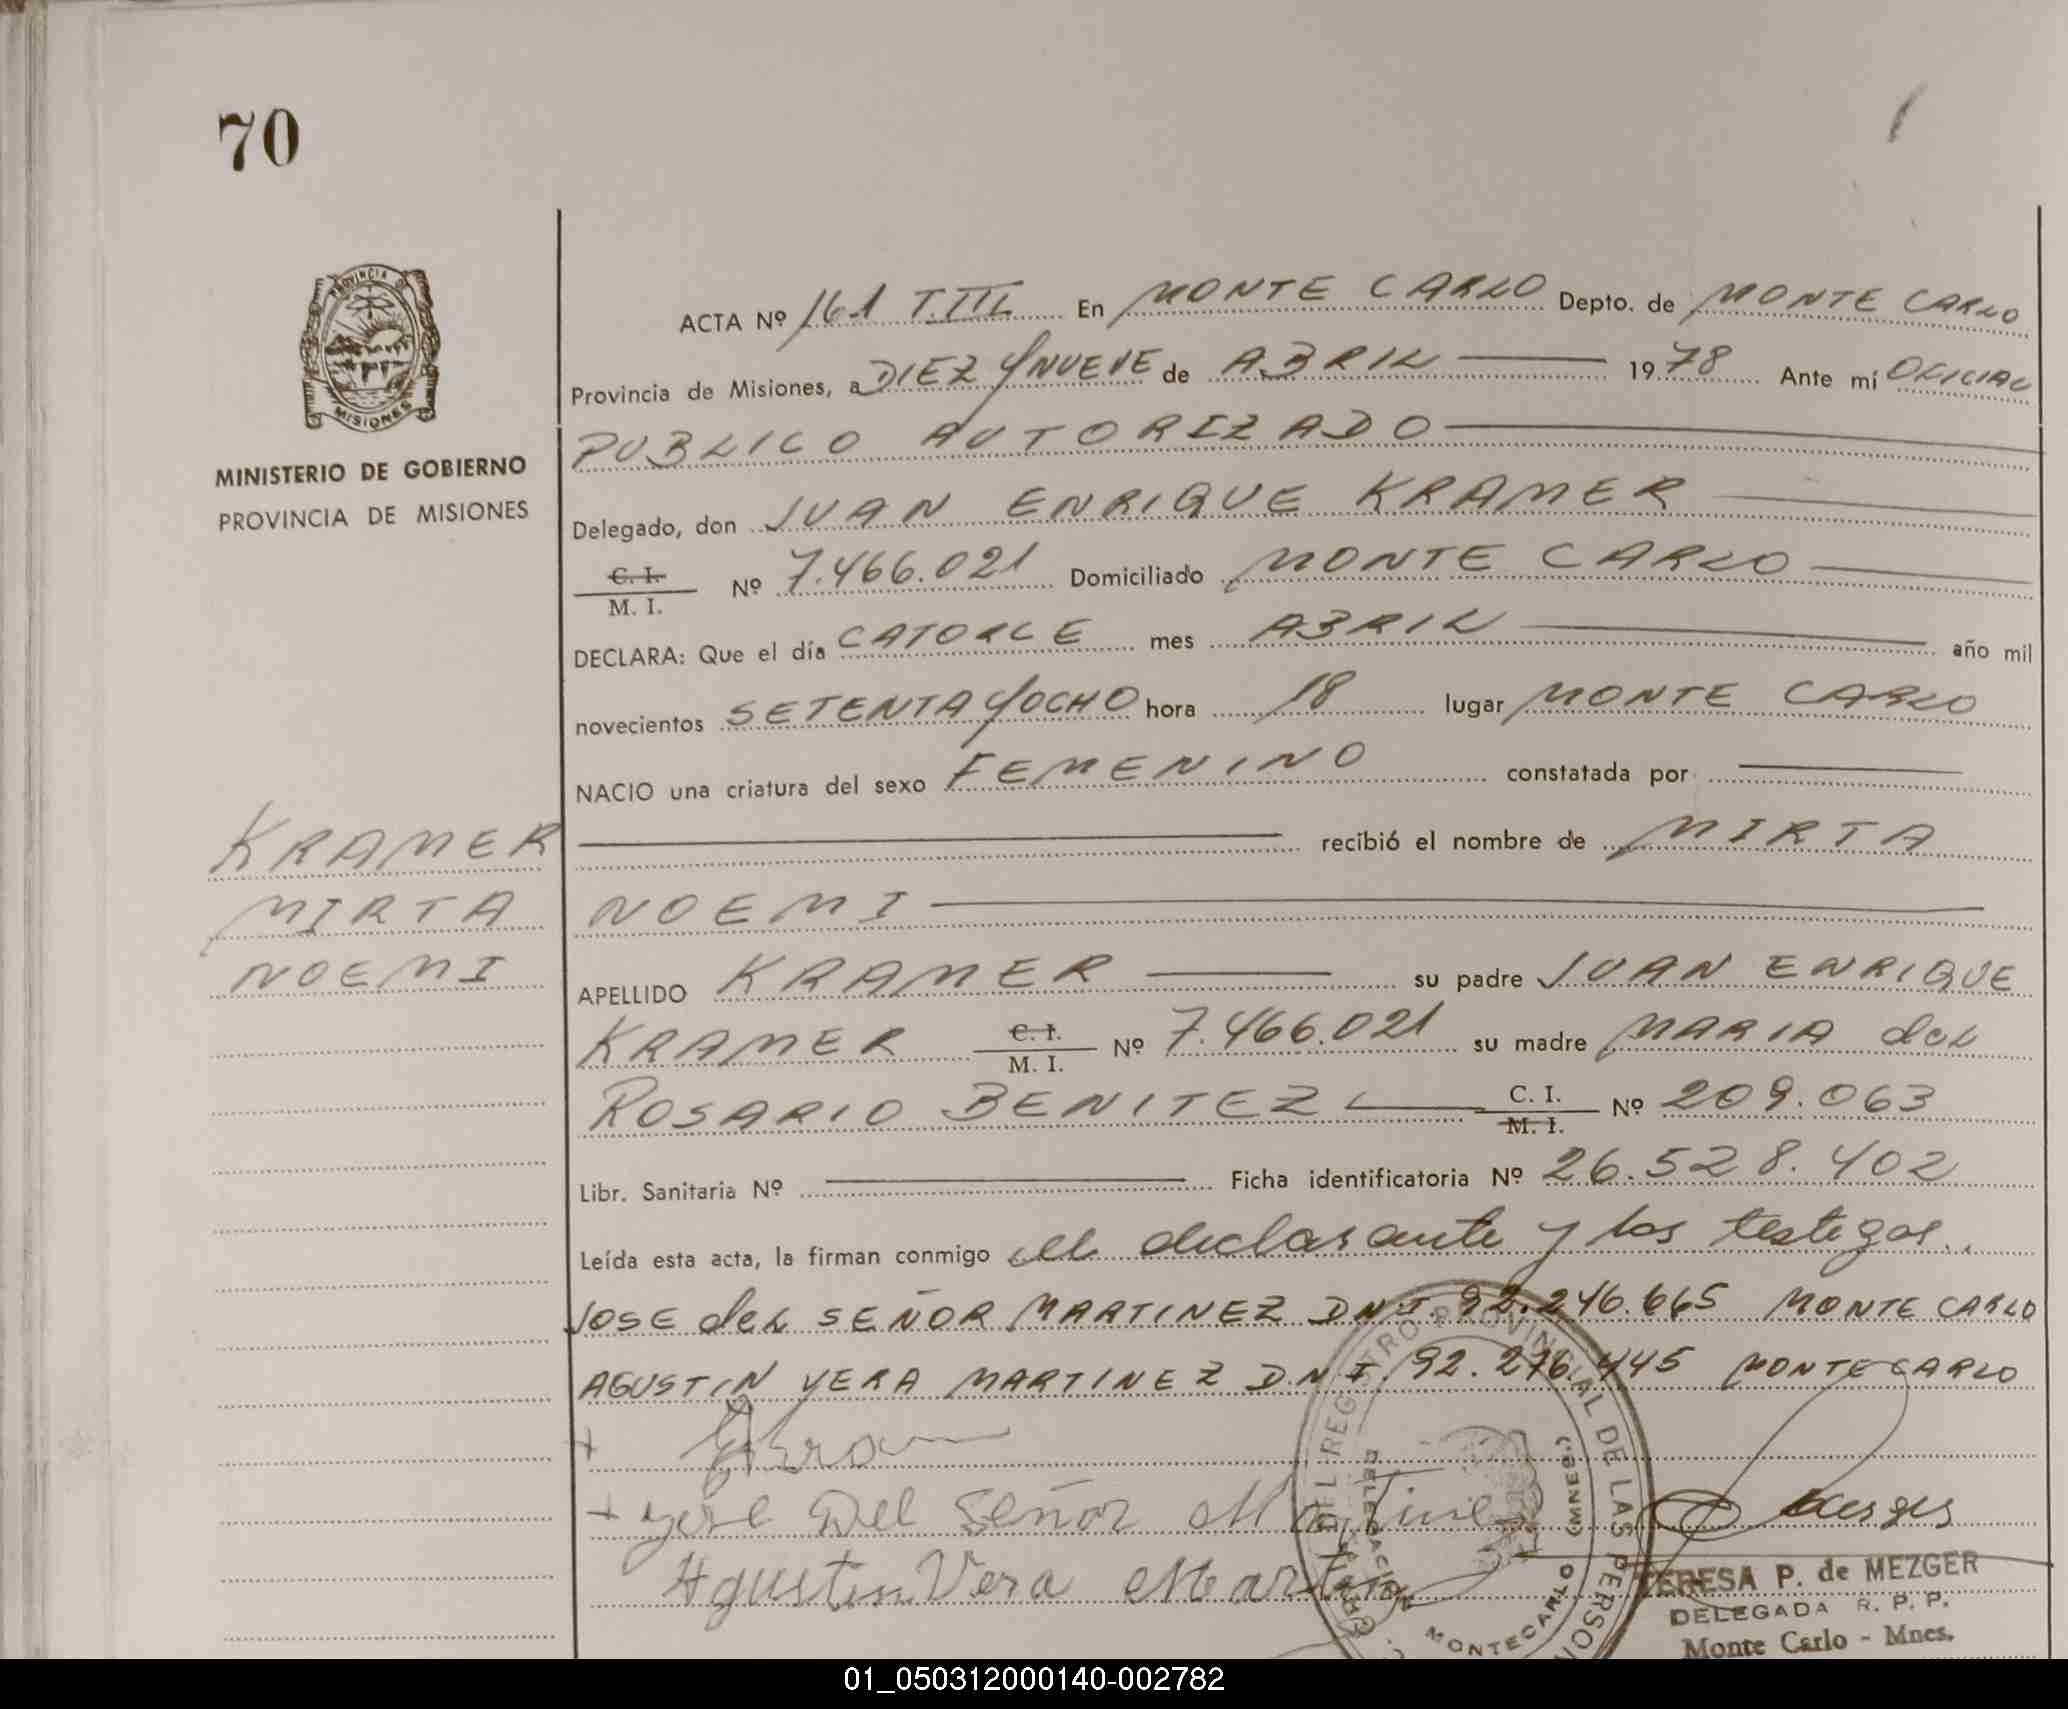 70
PROVINCIA DE
MISIONES
MINISTERIO DE GOBIERNO
PROVINCIA DE MISIONES
KRAMER
MIRTA
NOEMI
ACTA Nº 161 T.III En MONTE CARLO Depto. de MONTE CARLO
Provincia de Misiones, a DIEZ Y NUEVE de ABRIL 1978 Ante mí OFICIAL
PUBLICO AUTORIZADO
Delegado, don JUAN ENRIQUE KRAMER
C. I.
M. I. Nº 7.466.021 Domiciliado MONTE CARLO
DECLARA: Que el día CATORCE mes ABRIL año mil
novecientos SETENTA Y OCHO hora 18 lugar MONTE CARLO
NACIO una criatura del sexo FEMENINO constatada por
recibió el nombre de MIRTA
NOEMI
APELLIDO KRAMER su padre JUAN ENRIQUE
KRAMER C. I. M. I. Nº 7.466.021 su madre MARIA del
ROSARIO BENITEZ C. I. M. I. Nº 209.063
Libr. Sanitaria Nº Ficha identificatoria Nº 26.528.402
Leída esta acta, la firman conmigo el declarante y los testigos.
JOSE del SEÑOR MARTINEZ DNI. 92.246.665 MONTE CARLO
AGUSTIN VERA MARTINEZ DNI. 92.276.445 MONTE CARLO
José Del Señor Martinez
Agustin Vera Martinez
DEL REGISTRO PROVINCIAL DE LAS PERSON
DELEGACION MONTECARLO (MNES.)
TERESA P. de MEZGER
DELEGADA R. P. P.
Monte Carlo - Mnes.
01_050312000140-002782